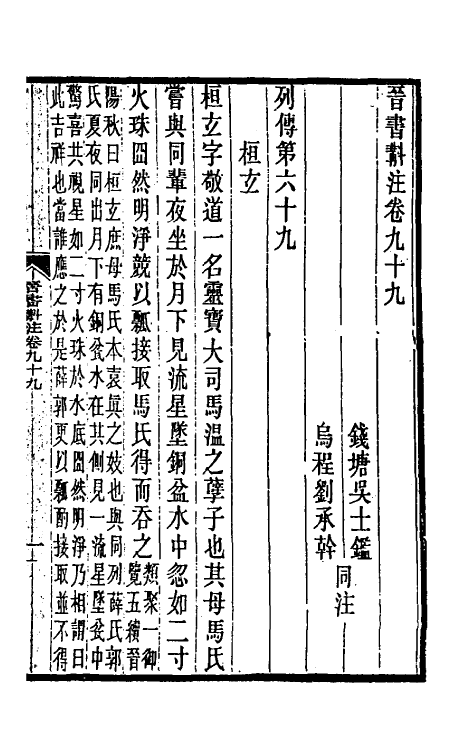 晉書斠注卷九十九
錢塘吳士鑑
烏程劉承幹
同注
列傳第六十九
桓玄
桓玄字敬道一名靈寶大司馬溫之孽子也其母馬氏
嘗與同輩夜坐於月下見流星墜銅盆水中忽如二寸
火珠冏然明淨競以瓢接取馬氏得而吞之
類聚一御
覽五續晉
陽秋曰桓玄庶母馬氏本袁眞之妓也與同列薛氏郭
氏夏夜同出月下有銅瓫水在其側見一流星墜瓫中
驚喜共視星如二寸火珠於水底冏然明淨乃相謂曰
此吉祥也當誰應之於是薛郭更以瓢酌接取並不得
晉書斠注卷九十九
一